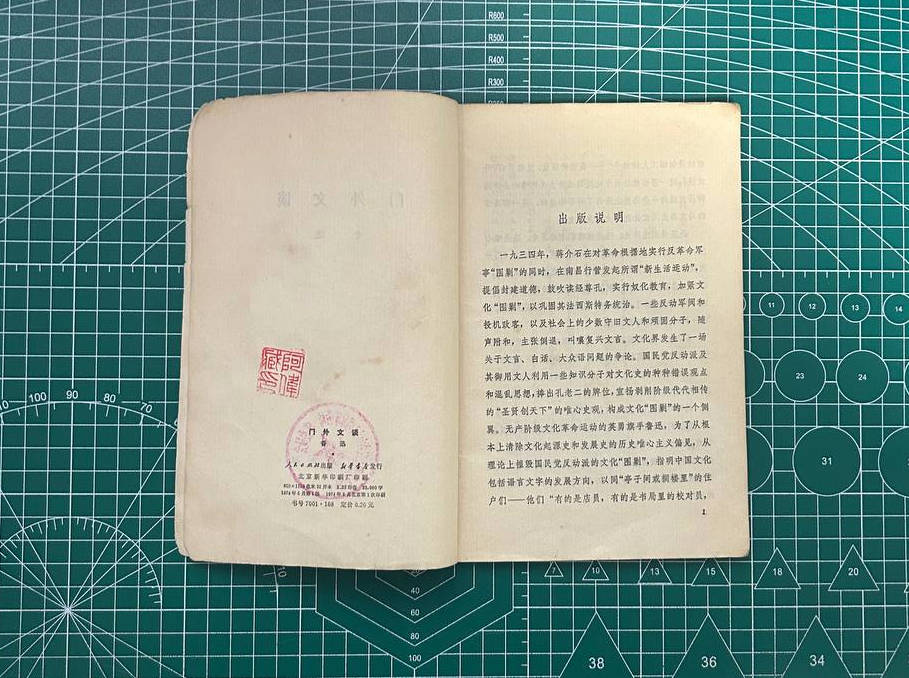 门外文谈
鲁迅
人民出版社出版 新华书店发行
北京新华印刷厂印刷
书号7001·168 定价0.20元
出版说明
一九三四年，蒋介石在对革命根据地实行反革命军
事“围剿”的同时，在南昌行营发起所谓“新生活运动”，
提倡封建道德，鼓吹读经尊孔，实行奴化教育，加紧文
化“围剿”，以巩固其法西斯特务统治。一些反动军阀和
投机政客，以及社会上的少数守旧文人和顽固分子，随
声附和，主张倒退，叫嚷复兴文言。文化界发生了一场
关于文言、白话、大众语问题的争论。国民党反动派及
其御用文人利用一些知识分子对文化史的种种错误观点
和混乱思想，捧出孔老二的牌位，宣扬剥削阶级代代相传
的“圣贤创天下”的唯心史观，构成文化“围剿”的一个侧
翼。无产阶级文化革命运动的英勇旗手鲁迅，为了从根
本上清除文化起源史和发展史的历史唯心主义偏见，从
理论上摧毁国民党反动派的文化“围剿”，指明中国文化
包括语言文字的发展方向，以同“亭子间或搁楼里”的住
户们——他们“有的是店员，有的是书局里的校对员，
1
R600
R500
R400
R300
100
90
80
70
11
12
13
14
23
24
31
7
10
13
15
18
20
40
60
80
100
38
36
34